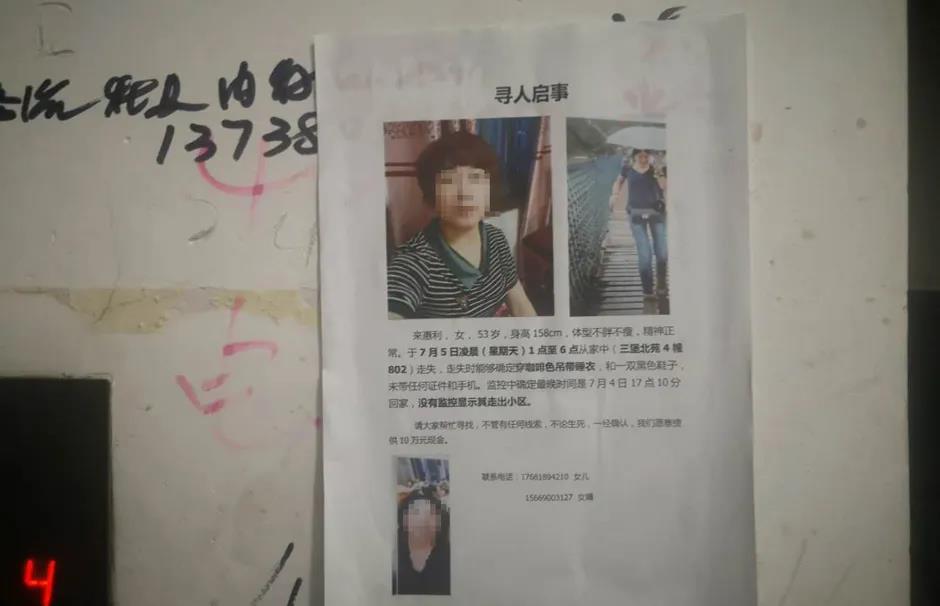 13738
寻人启事
来惠利，女，53岁，身高158cm，体型不胖不瘦，精神正
常。于7月5日凌晨（星期天）1点至6点从家中（三堡北苑4幢
802）走失，走失时能够确定穿咖啡色吊带睡衣，和一双黑色鞋子，
未带任何证件和手机。监控中确定最晚时间是7月4日17点10分
回家，没有监控显示其走出小区。
请大家帮忙寻找，不管有任何线索，不论生死，一经确认，我们愿意提
供10万元现金。
联系电话：17681894210 女儿
15669003127 女婿
4